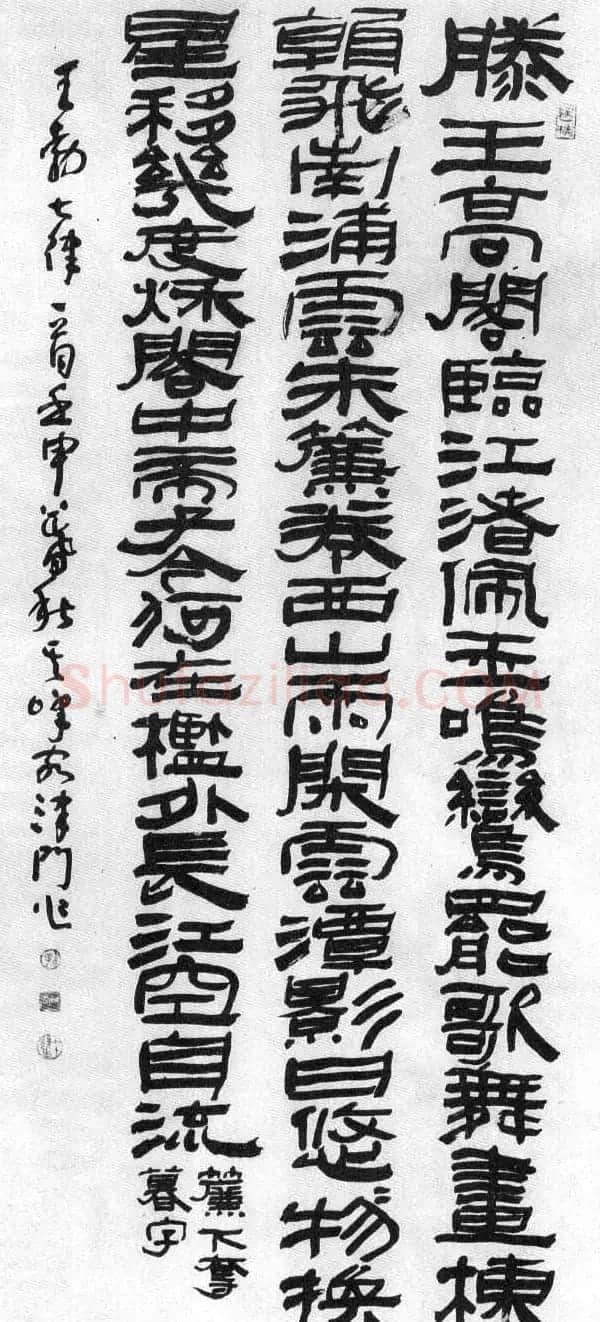 滕王高閣臨江渚佩玉鳴鸞罷歌舞畫棟
朝飛南浦雲朱簾卷西山雨閑雲潭影日悠〻物換
星移幾度秋閣中帝子今何在檻外長江空自流
簾下奪
暮字
王勃七律一首壬申暮秋其峰客津門作
Shufaziliao.COM